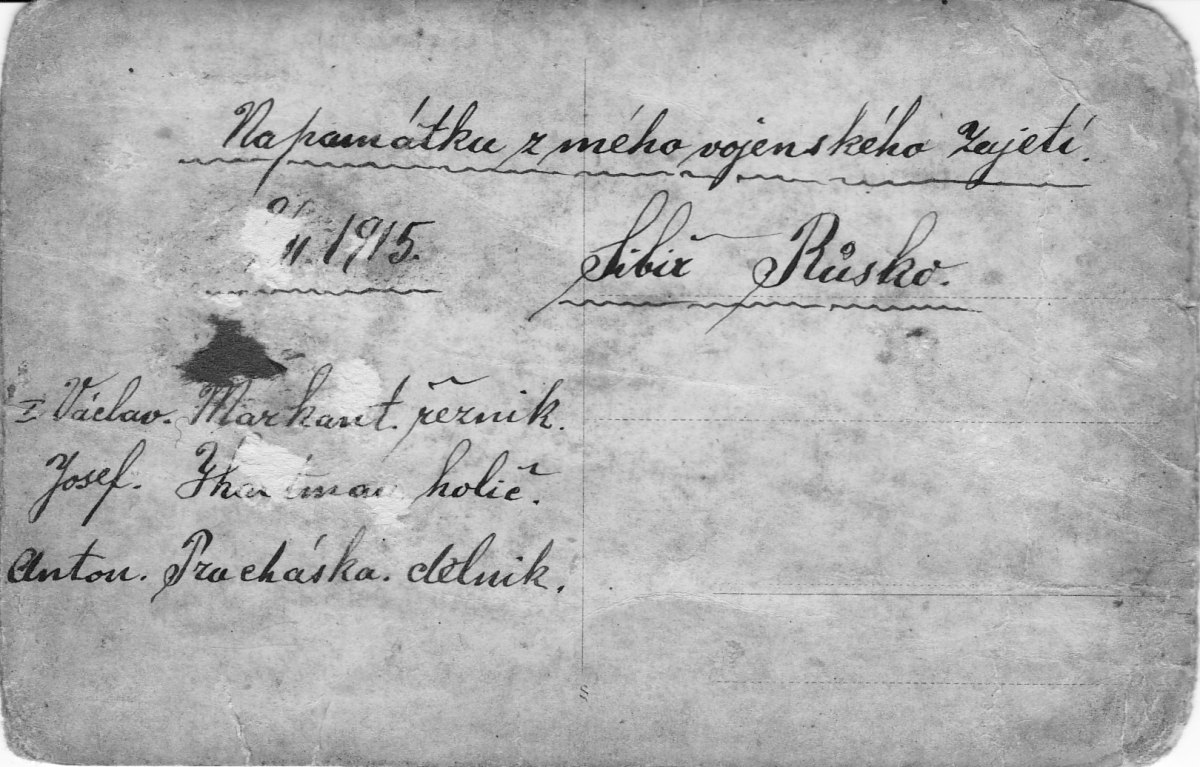 Na památku z mého vojenského Zajetí.
1915. Sibiř Růsko.
I Václav. Markant. řeznik.
Josef. holič.
Anton. Pracháska. dělnik.